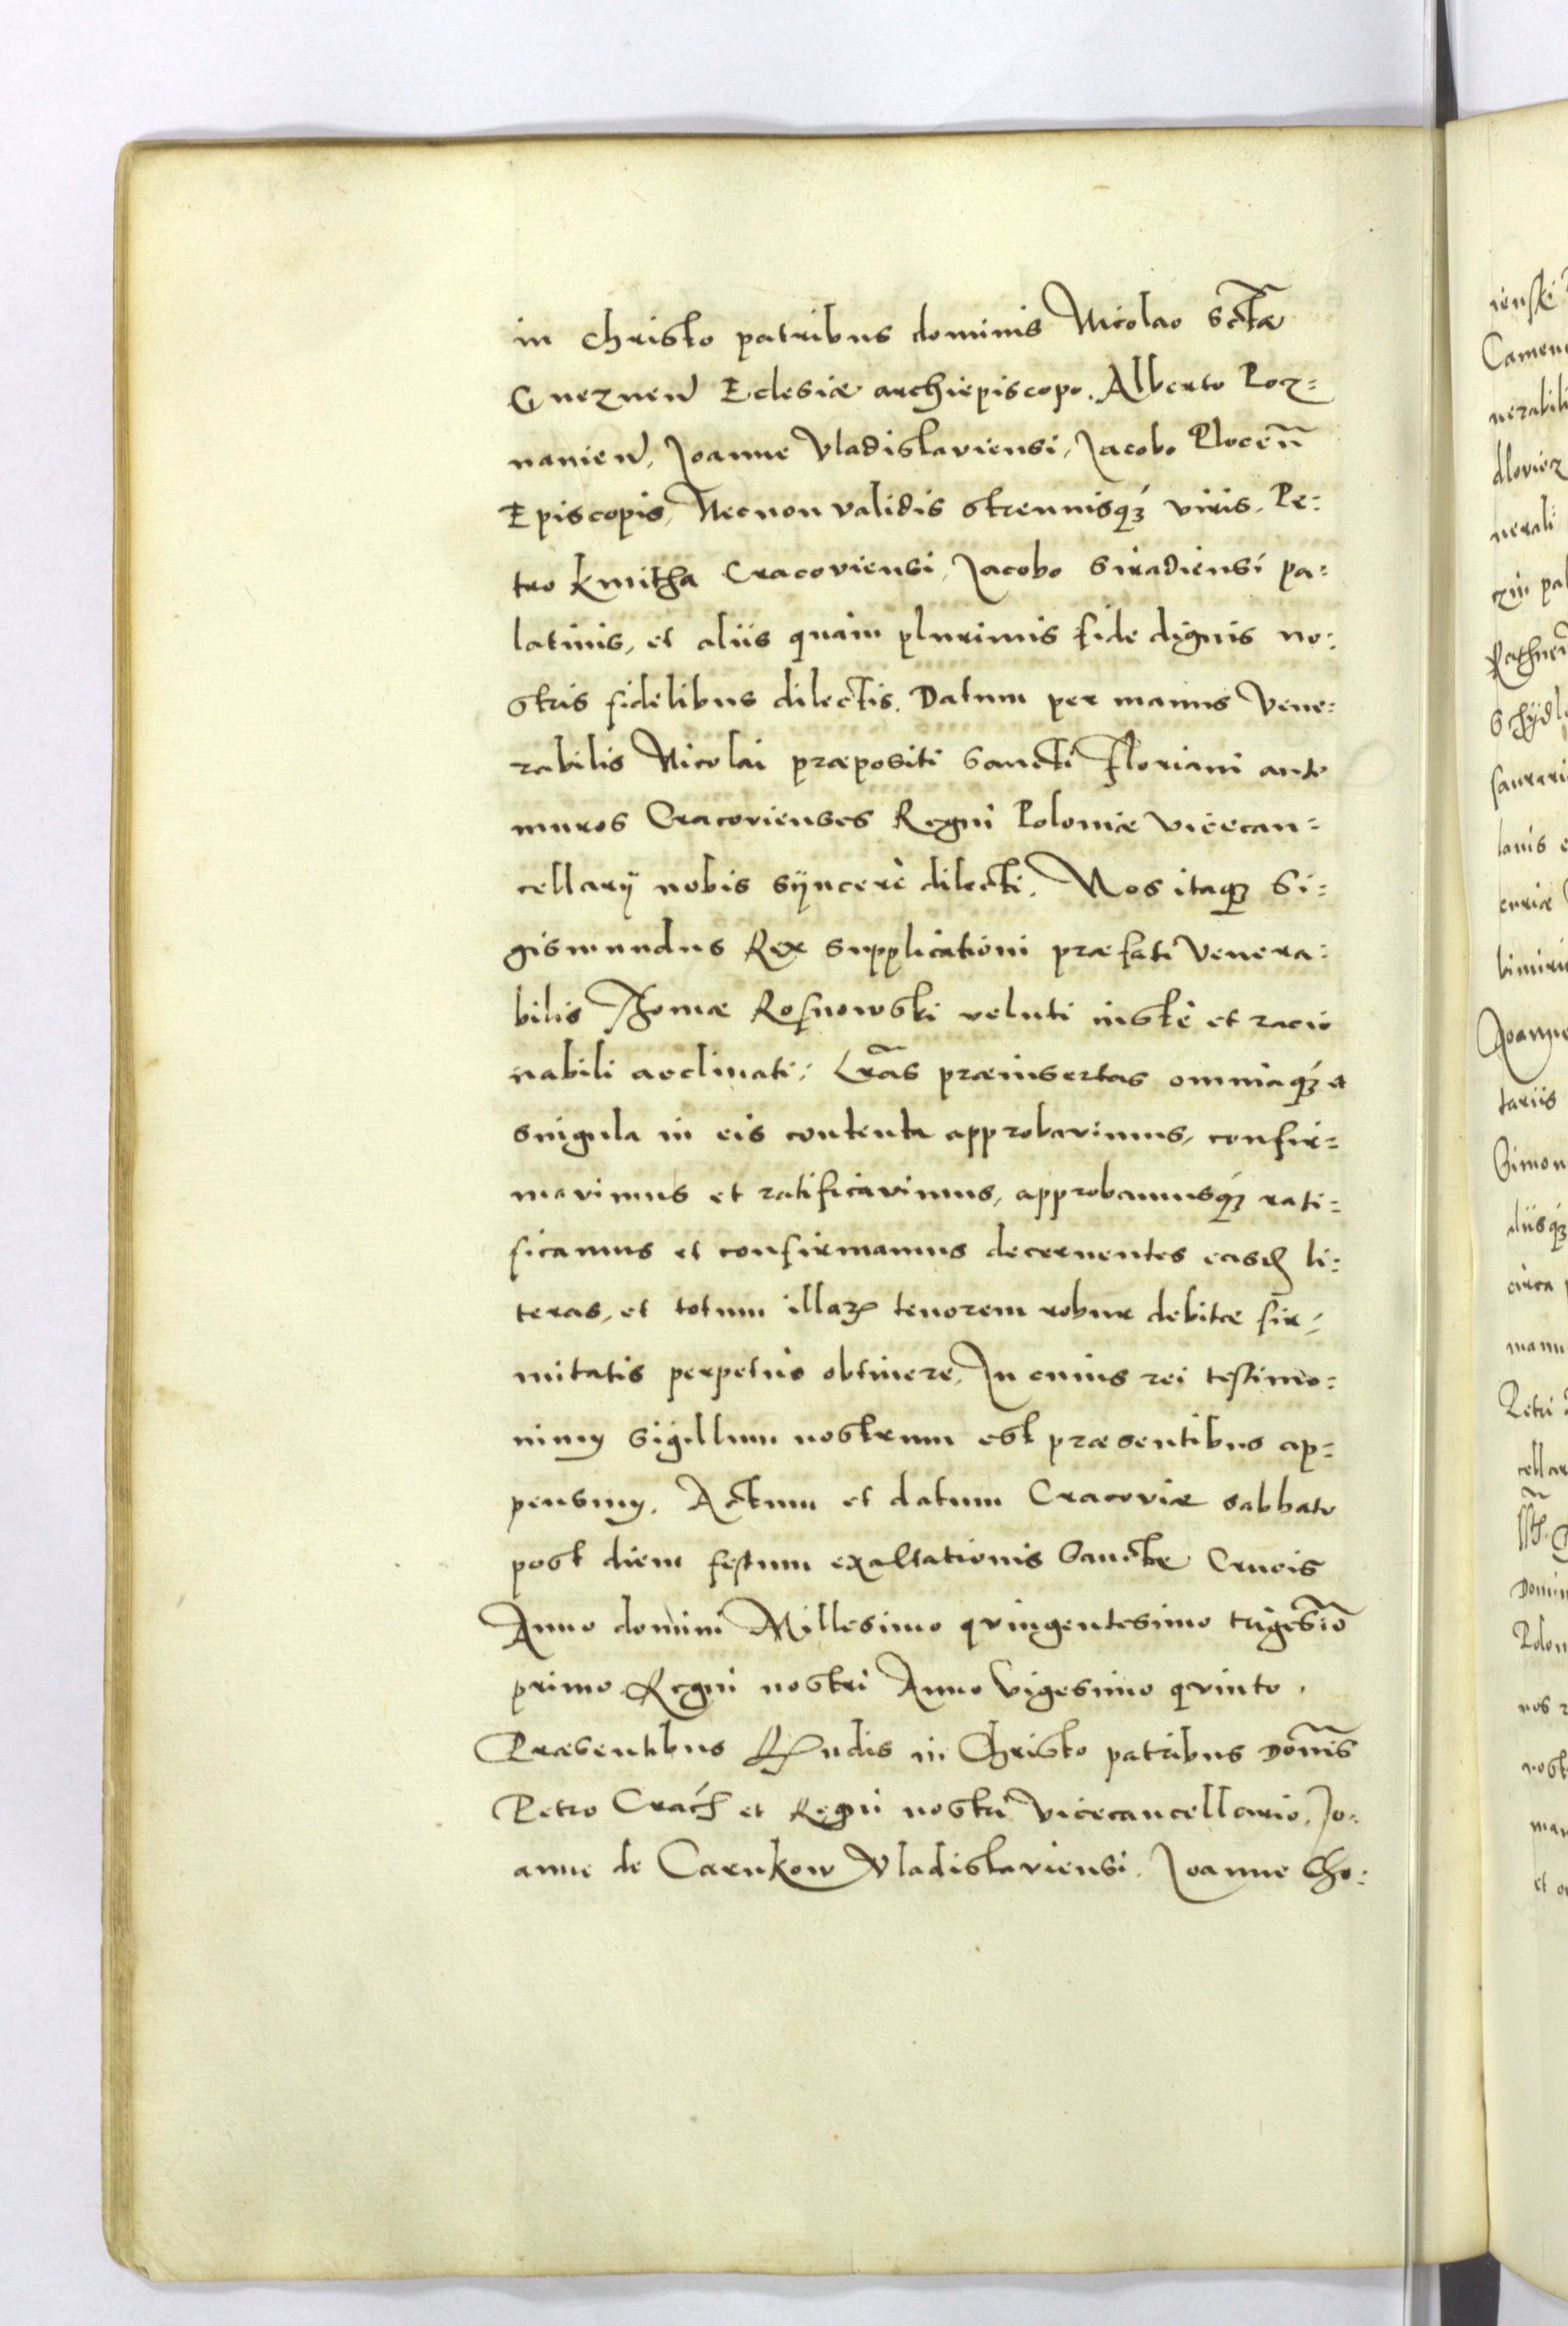 in Christo patribus dominis Nicolao Sctæ
Gneznen Eclesiæ archiepiscopo. Alberto Poz=
nanien, Joanne Vladislaviensi, Jacobo Plocen̄
Episcopis, Necnon validis strenuisq́ꝫ viris. Pe=
tro Kmitha Cracoviensi, Jacobo Siradiensi pa=
latinis, et aliis quam plurimis fide dignis no=
stris fidelibus dilectis. Datum per manus Vene=
rabilis Nicolai præpositi Sancti Floriani ante
muros Cracovienses Regni Poloniæ vicecan=
cellarij nobis sÿncerè dilecti. Nos itaqꝫ Si=
gismundus Rex supplicationi præfati Venera=
bilis Thomæ Rosnowski veluti iustè et racio
nabili acclinati, Lr̃as præinsertas omniaq́ꝫ et
singula in eis contenta approbavimus, confir=
mavimus et ratificavimus, approbamusq́ꝫ rati=
ficamus et confirmamus decernentes easd li=
teras, et totum illaꝝ tenorem robur debitæ fir=
mitatis perpetuò obtinere, In cuius rei testimo=
nium sigillum nostrum est præsentibus ap=
pensum. Actum et datum Cracoviæ sabbato
post diem festum exaltationis Sanctæ Crucis
Anno domini Millesimo qvingentesimo trigesīo
primo Regni nostri Anno Vigesimo qvinto.
Præsentibus Rndis in Christo patribus Dom̄is
Petro Crac̄ et Regni nostri Vicecancellario, Jo=
anne de Carnkow Vladislaviensi. Joanne Cho=
ienski
Camene
nerabili
dlovicz
nerali
Schÿdl
lanis e
Joanne
tariis
Simon
aliisq́ꝫ
circa p
manu
Petri
cellar
Domin
Polon
nos r
nost
man
et o